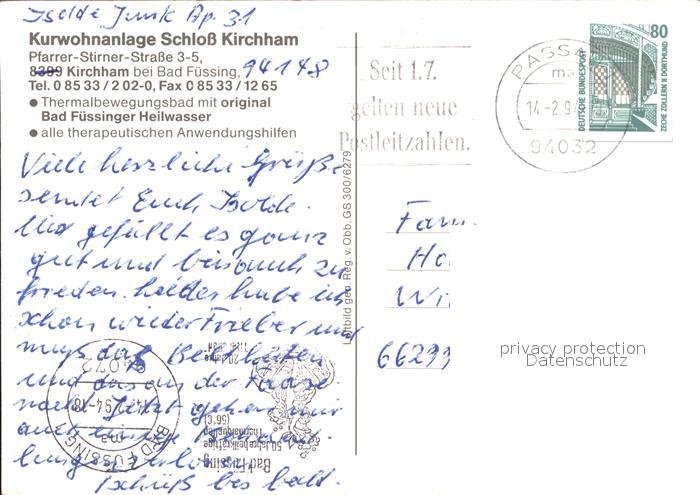 Isolde Junk Ap. 31
Kurwohnanlage Schloß Kirchham
Pfarrer-Stirner-Straße 3-5,
8399 Kirchham bei Bad Füssing, 94148
Tel. 0 85 33 / 2 02-0, Fax 0 85 33 / 12 65
● Thermalbewegungsbad mit original
Bad Füssinger Heilwasser
● alle therapeutischen Anwendungshilfen
Viele herzliche Grüße
sendet Euch Isolde.
Mir gefällt es ganz
gut und bin auch zu
frieden. Leider habe ich
schon wieder Fieber und
muß das Bett hüten
und das an der
auch einige
Tschüß bis bald.
Luftbild gen. Reg. v. Obb. GS 300/6279
Seit 1.7.
gelten neue
Postleitzahlen.
PASSA
14.-2.9
94032
DEUTSCHE BUNDESPOST
80
ZECHE ZOLLERN II DORTMUND
Fam.
Ho
Wi
66299
privacy protection
Datenschutz
BAD FÜSSING 1
94072
Bad Füssing
(56°C)